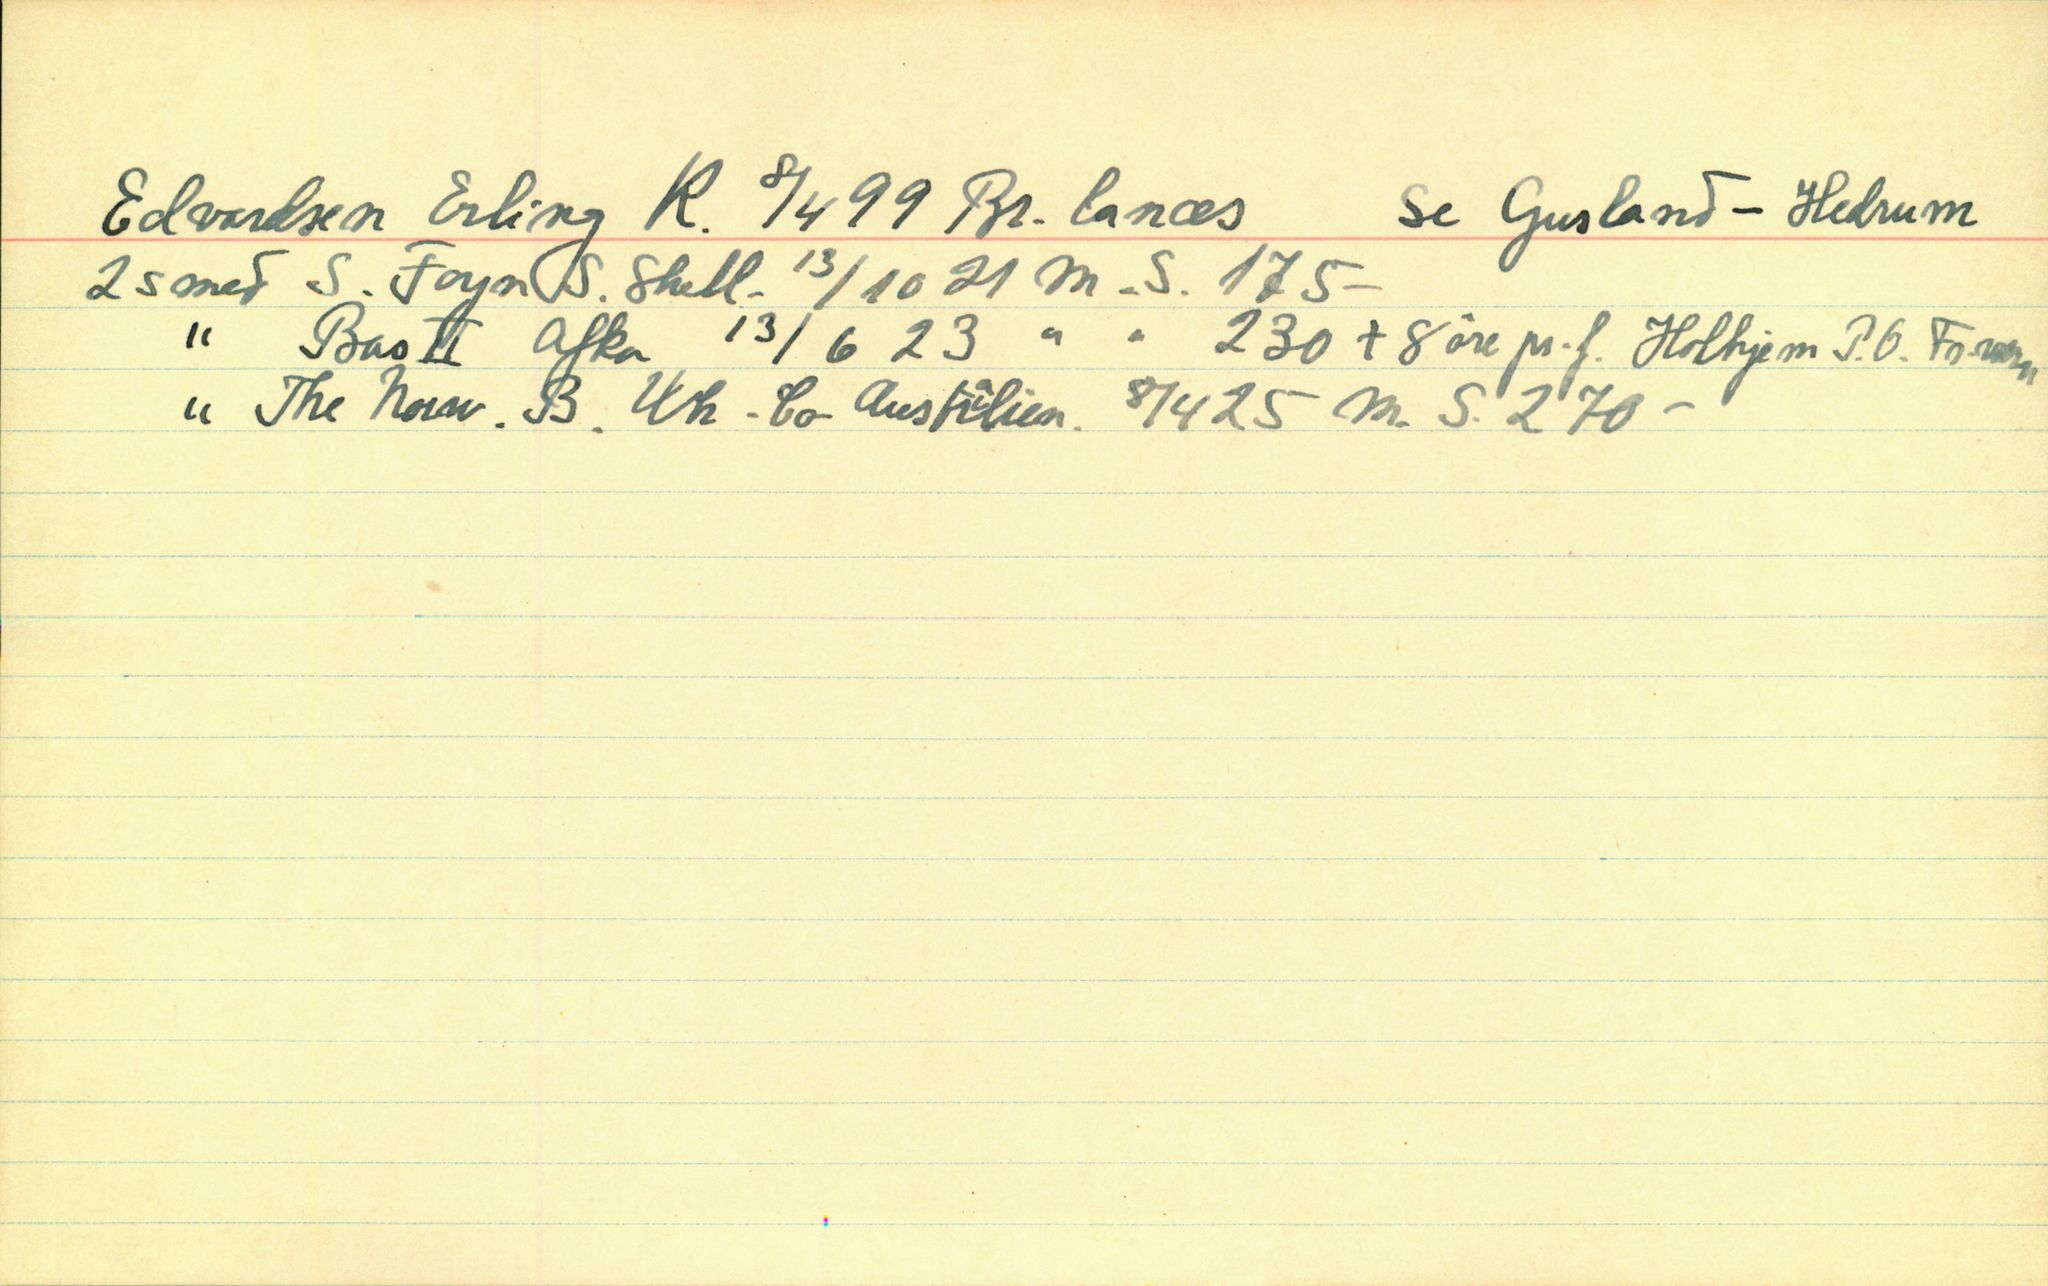 Edvardsen Erling K. 8/4 99 Br. lanæs Se Gusland - Hedrum
2 smed S. Foyn S. Shetl. 13/10 21 M.S. 175-
" Bas II Afka 13/6 23 " " 230 + 8 öre pr. f. Holhjem P.O.
" The Norw. B. Wh. Co Australien. 8/4 25 M. S. 270-